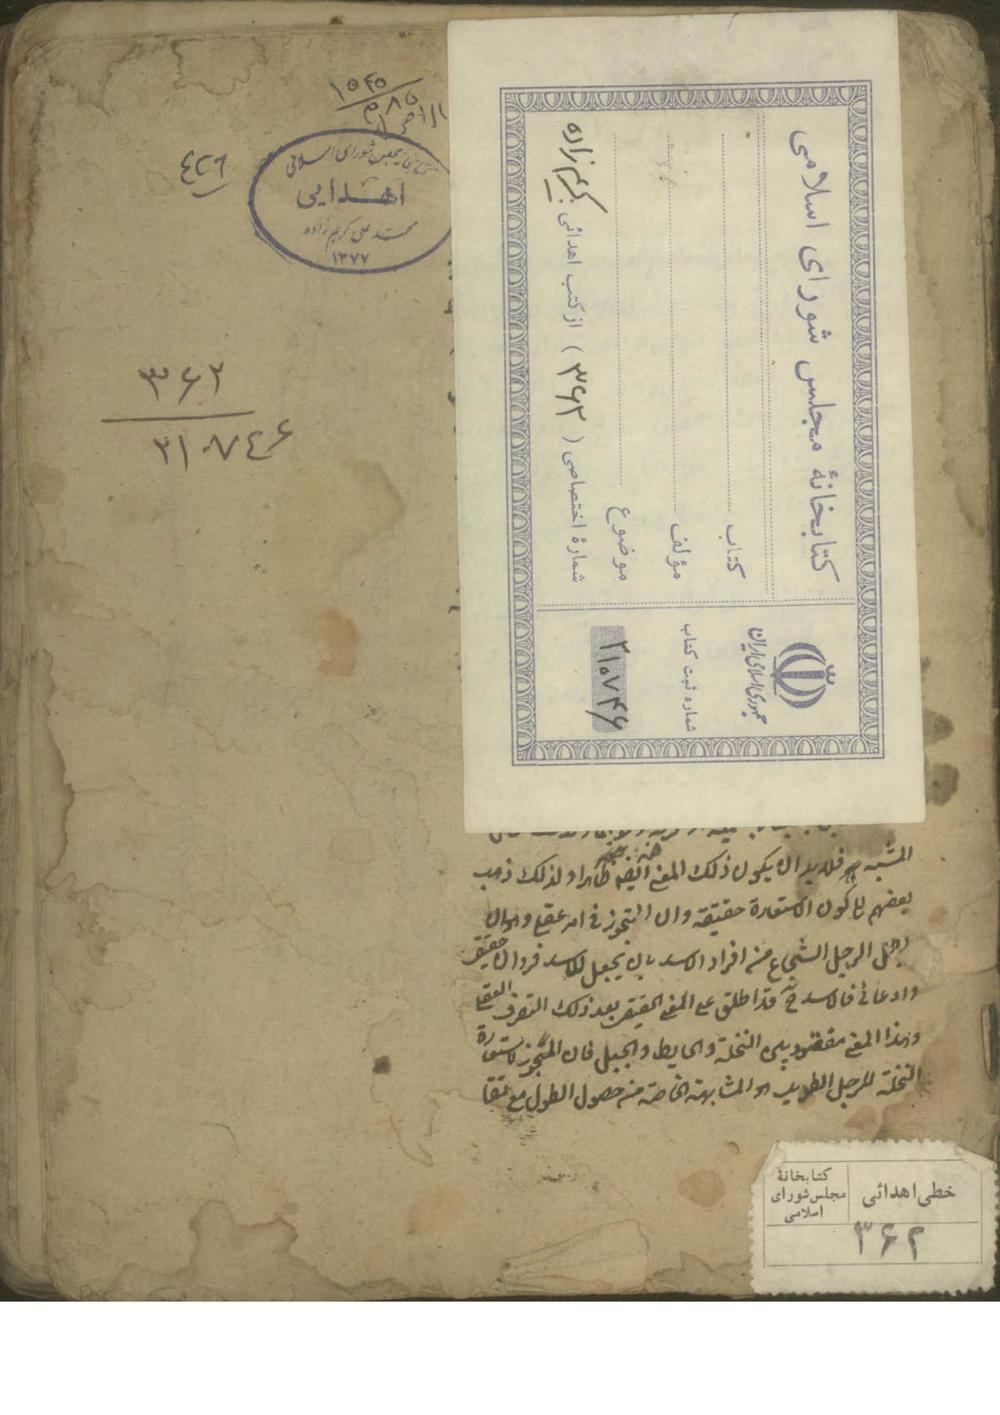 ٤٢٦
کتابخانه مجلس شورای اسلامی
اهدایی
محمد علی کریم زاده
١٣٧٧
٣۶٢
کتابخانهٔ مجلس شورای اسلامی
کتاب
مؤلف
موضوع
شمارهٔ اختصاصی ( ٣۶٢ ) از کتب اهدائی کریم زاده
جمهوری اسلامی ایران
شماره ثبت کتاب
٢١٠٧٤۶
المشبه به فلا بد ان یکون ذلک المعنی ایضا ظاهرا و لذلک ذهب
بعضهم الی کون الاستعارة حقیقة وان التجوز فی امر عقلی وهو ان
جعل الرجل الشجاع من افراد الاسد بان یجعل للاسد فردان حقیقی
وادعائی فالاسد ح قد اطلق علی المعنی الحقیقی بعد ذلک التصرف العقلی
وهذا المعنی مفقود بین النخلة والحایط والجبل فان المجوز لاستعارة
النخلة للرجل الطویل هو المشابهة الخاصة من حصول الطول مع تقا
کتابخانهٔ
مجلس شورای
اسلامی
خطی اهدائی
٣۶٢